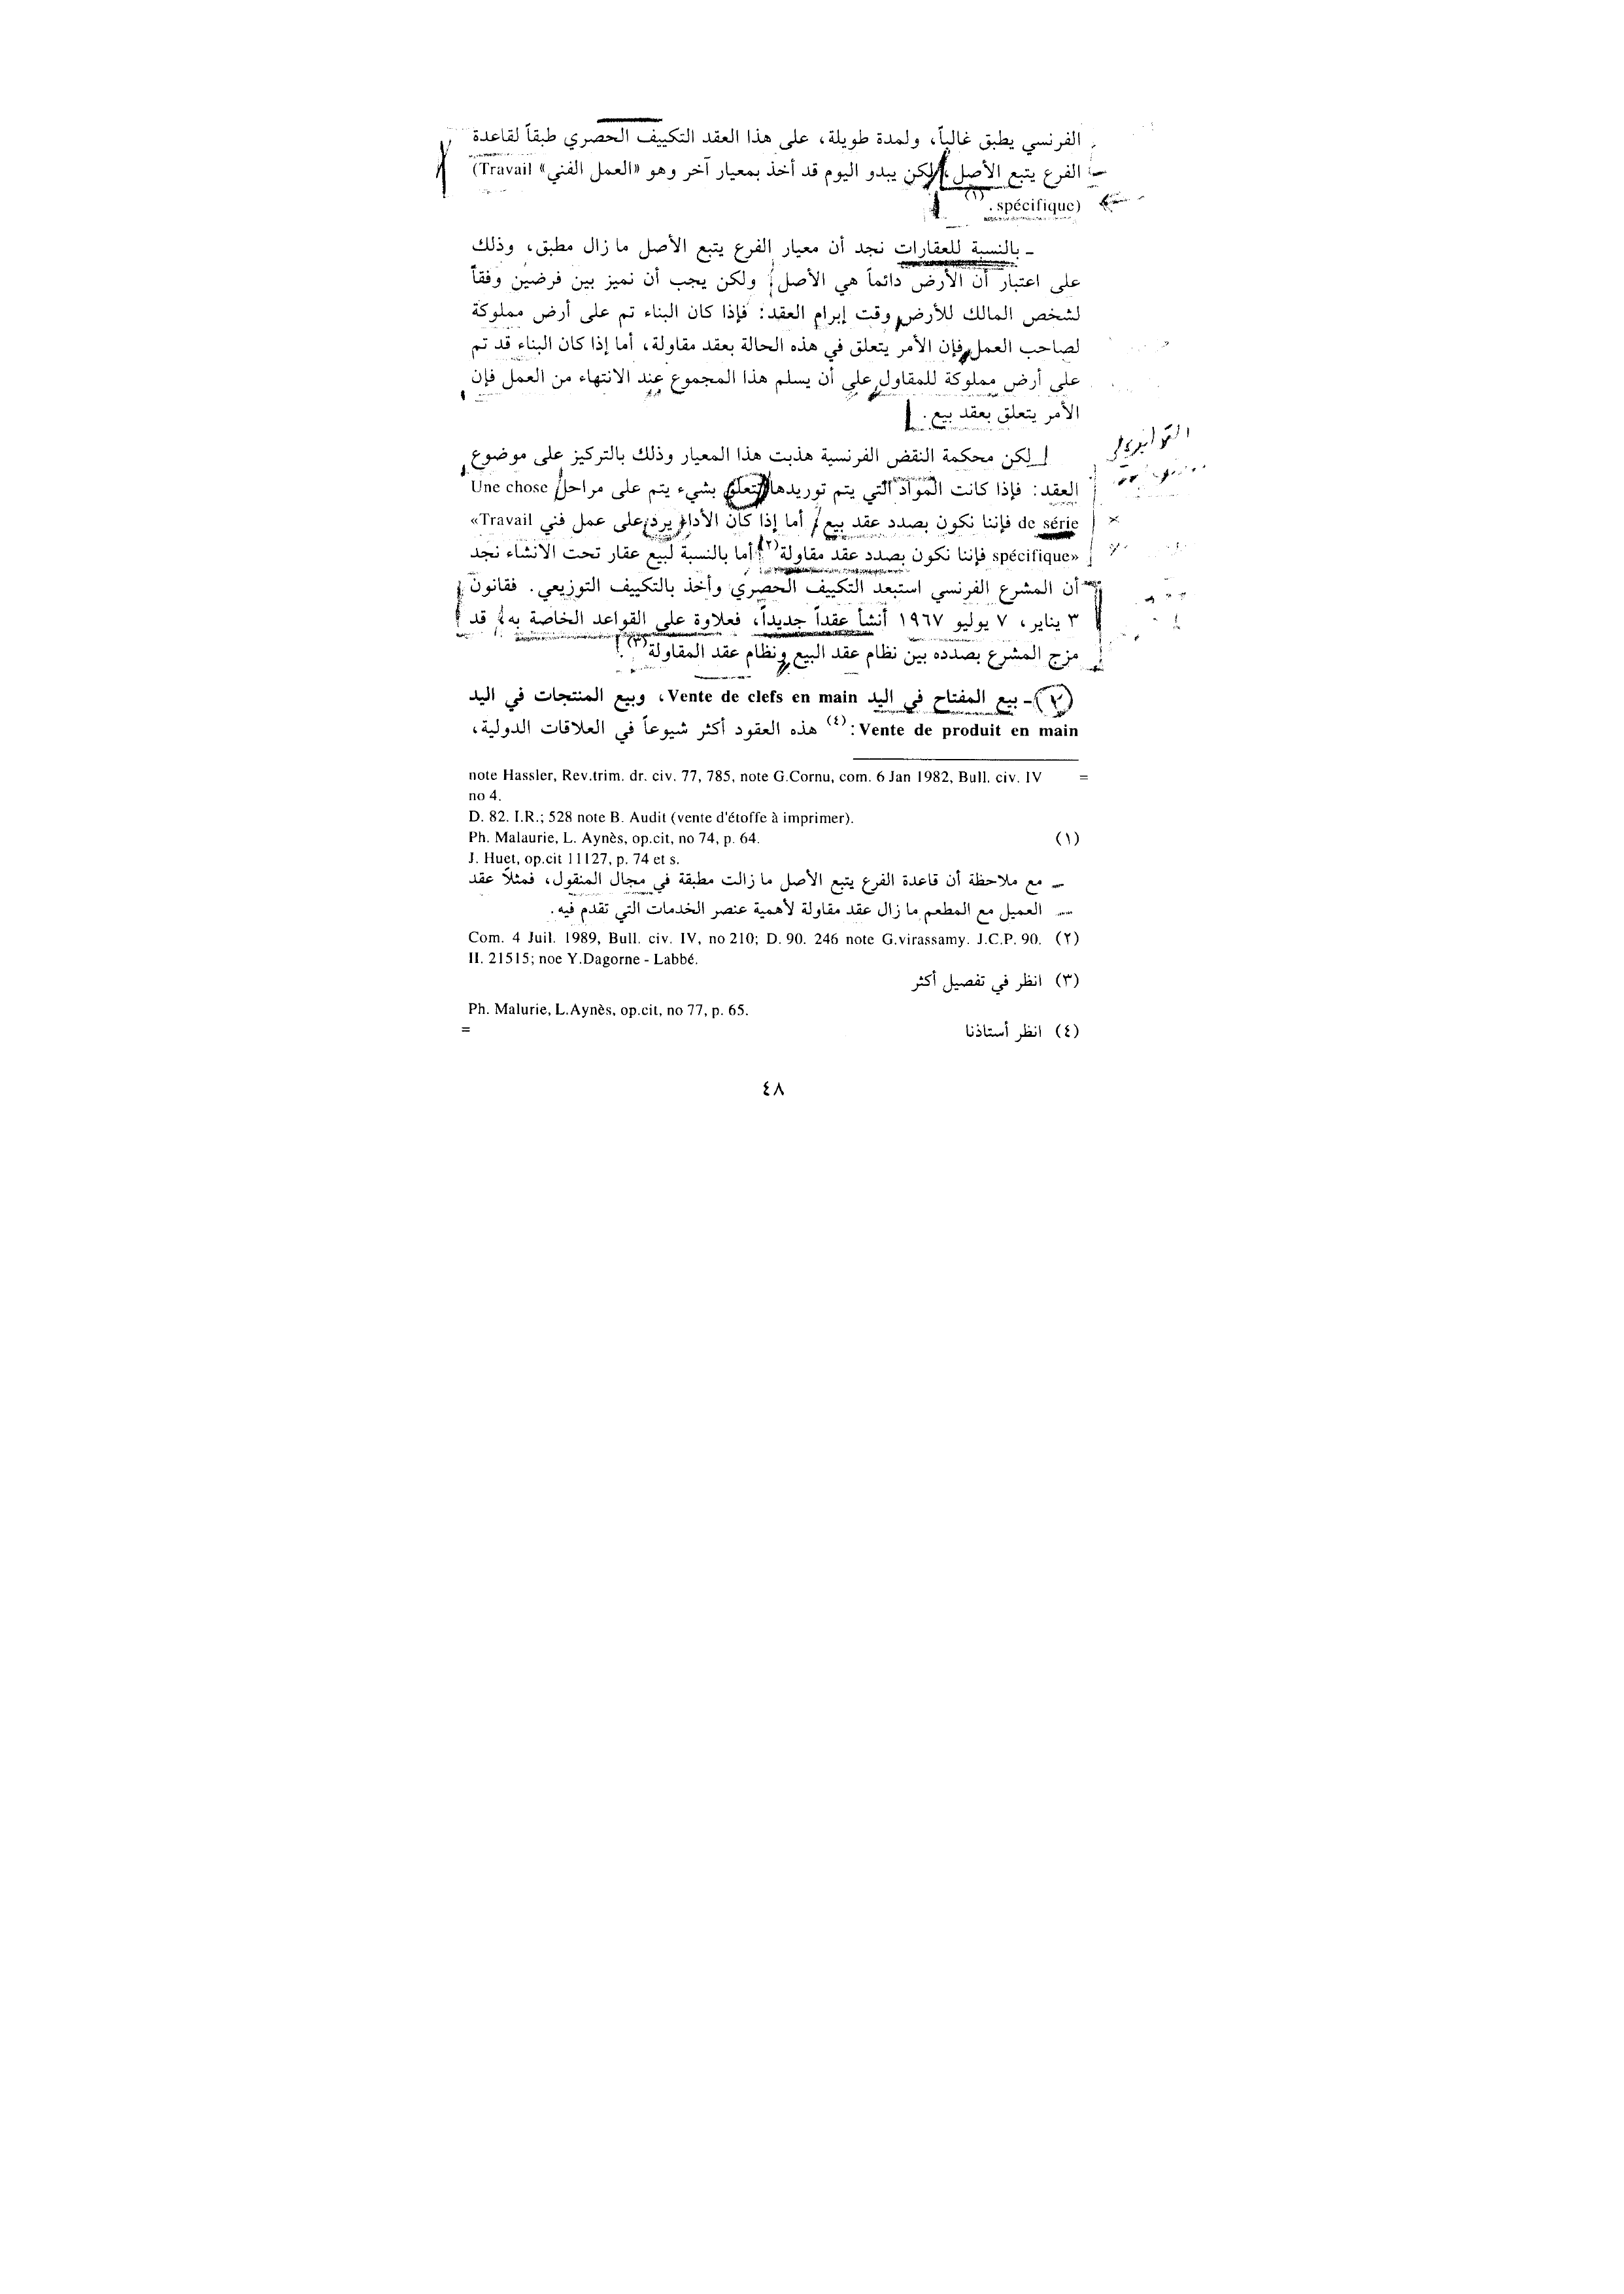 الفرنسي يطبق غالباً، ولمدة طويلة، على هذا العقد التكييف الحصري طبقاً لقاعدة
الفرع يتبع الأصل، لكن يبدو اليوم قد أخذ بمعيار آخر وهو «العمل الفني» (Travail
spécifique) (١).
ـ بالنسبة للعقارات نجد أن معيار الفرع يتبع الأصل ما زال مطبق، وذلك
على اعتبار أن الأرض دائماً هي الأصل، ولكن يجب أن نميز بين فرضين وفقاً
لشخص المالك للأرض وقت إبرام العقد: فإذا كان البناء تم على أرض مملوكة
لصاحب العمل فإن الأمر يتعلق في هذه الحالة بعقد مقاولة، أما إذا كان البناء قد تم
على أرض مملوكة للمقاول على أن يسلم هذا المجموع عند الانتهاء من العمل فإن
الأمر يتعلق بعقد بيع.
لكن محكمة النقض الفرنسية هذبت هذا المعيار وذلك بالتركيز على موضوع
العقد: فإذا كانت المواد التي يتم توريدها تتعلق بشيء يتم على مراحل Une chose
de série فإننا نكون بصدد عقد بيع، أما إذا كان الأداء يرد على عمل فني «Travail
spécifique» فإننا نكون بصدد عقد مقاولة(٢) أما بالنسبة لبيع عقار تحت الانشاء نجد
أن المشرع الفرنسي استبعد التكييف الحصري وأخذ بالتكييف التوزيعي. فقانون
٣ يناير، ٧ يوليو ١٩٦٧ أنشأ عقداً جديداً، فعلاوة على القواعد الخاصة به، قد
مزج المشرع بصدده بين نظام عقد البيع ونظام عقد المقاولة(٣).
(٢) ـ بيع المفتاح في اليد Vente de clefs en main، وبيع المنتجات في اليد
Vente de produit en main: (٤) هذه العقود أكثر شيوعاً في العلاقات الدولية،
= note Hassler, Rev.trim. dr. civ. 77, 785, note G.Cornu, com. 6 Jan 1982, Bull. civ. IV
no 4.
D. 82. I.R.; 528 note B. Audit (vente d'étoffe à imprimer).
(١) Ph. Malaurie, L. Aynès, op.cit, no 74, p. 64.
J. Huet, op.cit 11127, p. 74 et s.
ـ مع ملاحظة أن قاعدة الفرع يتبع الأصل ما زالت مطبقة في مجال المنقول، فمثلاً عقد
العميل مع المطعم ما زال عقد مقاولة لأهمية عنصر الخدمات التي تقدم فيه.
(٢) Com. 4 Juil. 1989, Bull. civ. IV, no 210; D. 90. 246 note G.virassamy. J.C.P. 90.
II. 21515; noe Y.Dagorne - Labbé.
(٣) انظر في تفصيل أكثر
Ph. Malurie, L.Aynès, op.cit, no 77, p. 65.
(٤) انظر أستاذنا =
٤٨